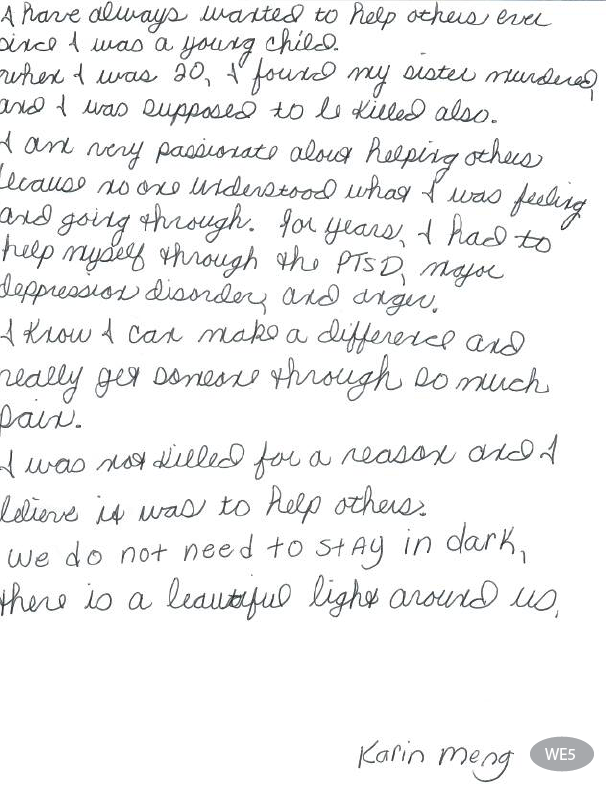 I have always wanted to help others ever
since I was a young child.
when I was 20, I found my sister murdered,
and I was supposed to be killed also.
I am very passionate about helping others
because no one understood what I was feeling
and going through. for years, I had to
help myself through the PTSD, major
deppression disorder, and anger.
I know I can make a difference and
really get someone through so much
pain.
I was not killed for a reason and I
believe it was to help others.
we do not need to stay in dark,
there is a beautiful light around us.
Karin Meng
WE5